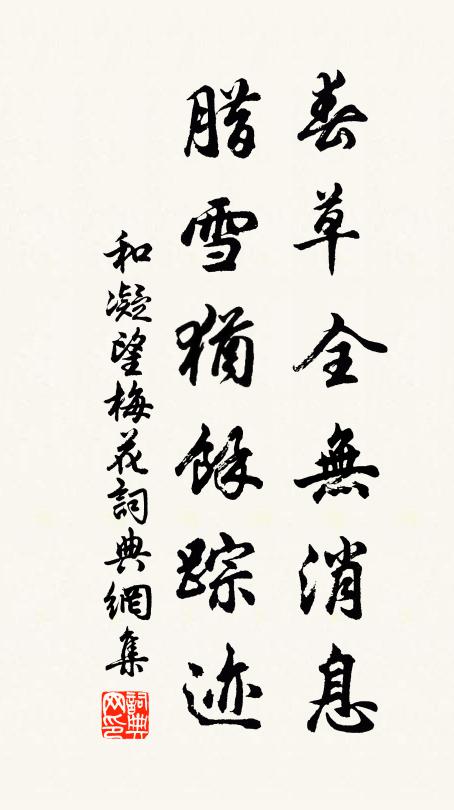 春草全無消息
腊雪猶餘踪迹
和凝望梅花詞典網集
詞典網印